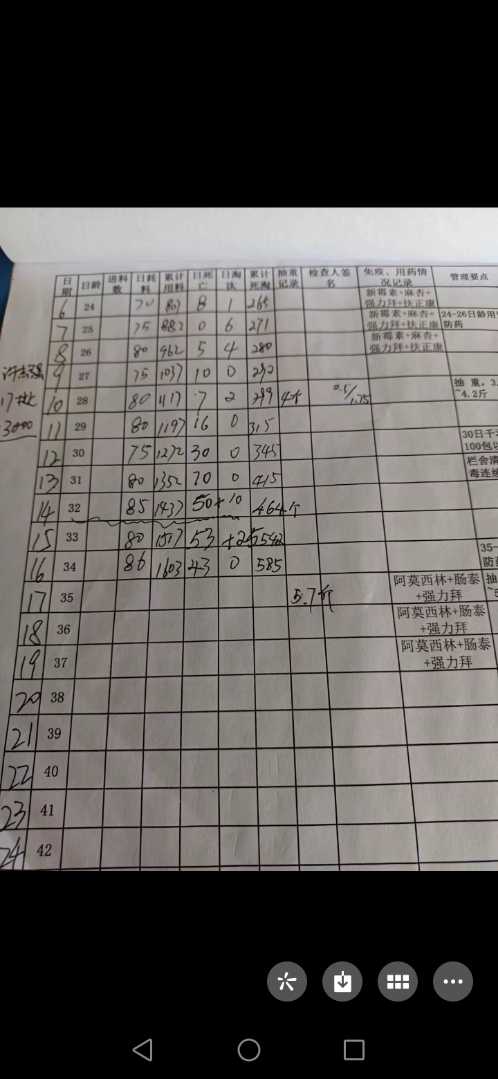 日期 日龄 进料数 日耗料 累计用料 日死亡 日淘汰 累计死淘 抽重记录 检查人签名 免疫、用药情况记录 管理要点
6 24 70 807 8 1 265 新霉素+麻杏+强力拜+扶正康
7 25 75 882 0 6 271 新霉素+麻杏+强力拜+扶正康 24-26日龄用 防药
8 26 80 962 5 4 280 新霉素+麻杏+强力拜+扶正康
9 27 75 1037 10 0 292
17批
10 28 80 1117 7 2 299 抽重,3. ~4.2斤
11 29 80 1197 16 0 315
12 30 75 1272 30 0 345 30日 100包
13 31 80 1352 70 0 415 栏舍 毒连
14 32 85 1437 50+10 464
15 33 80 1517 53 542
16 34 86 1603 43 0 585 35- 防
17 35 5.7斤 阿莫西林+肠泰+强力拜 抽
18 36 阿莫西林+肠泰+强力拜
19 37 阿莫西林+肠泰+强力拜
20 38
21 39
22 40
23 41
24 42